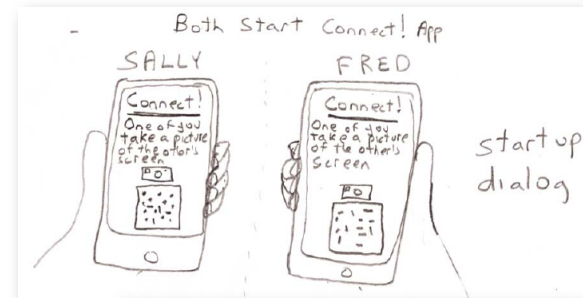 Both Start Connect! App
SALLY
FRED
Connect!
One of you
take a picture
of the other's
screen
Connect!
One of you
take a picture
of the other's
screen
startup
dialog